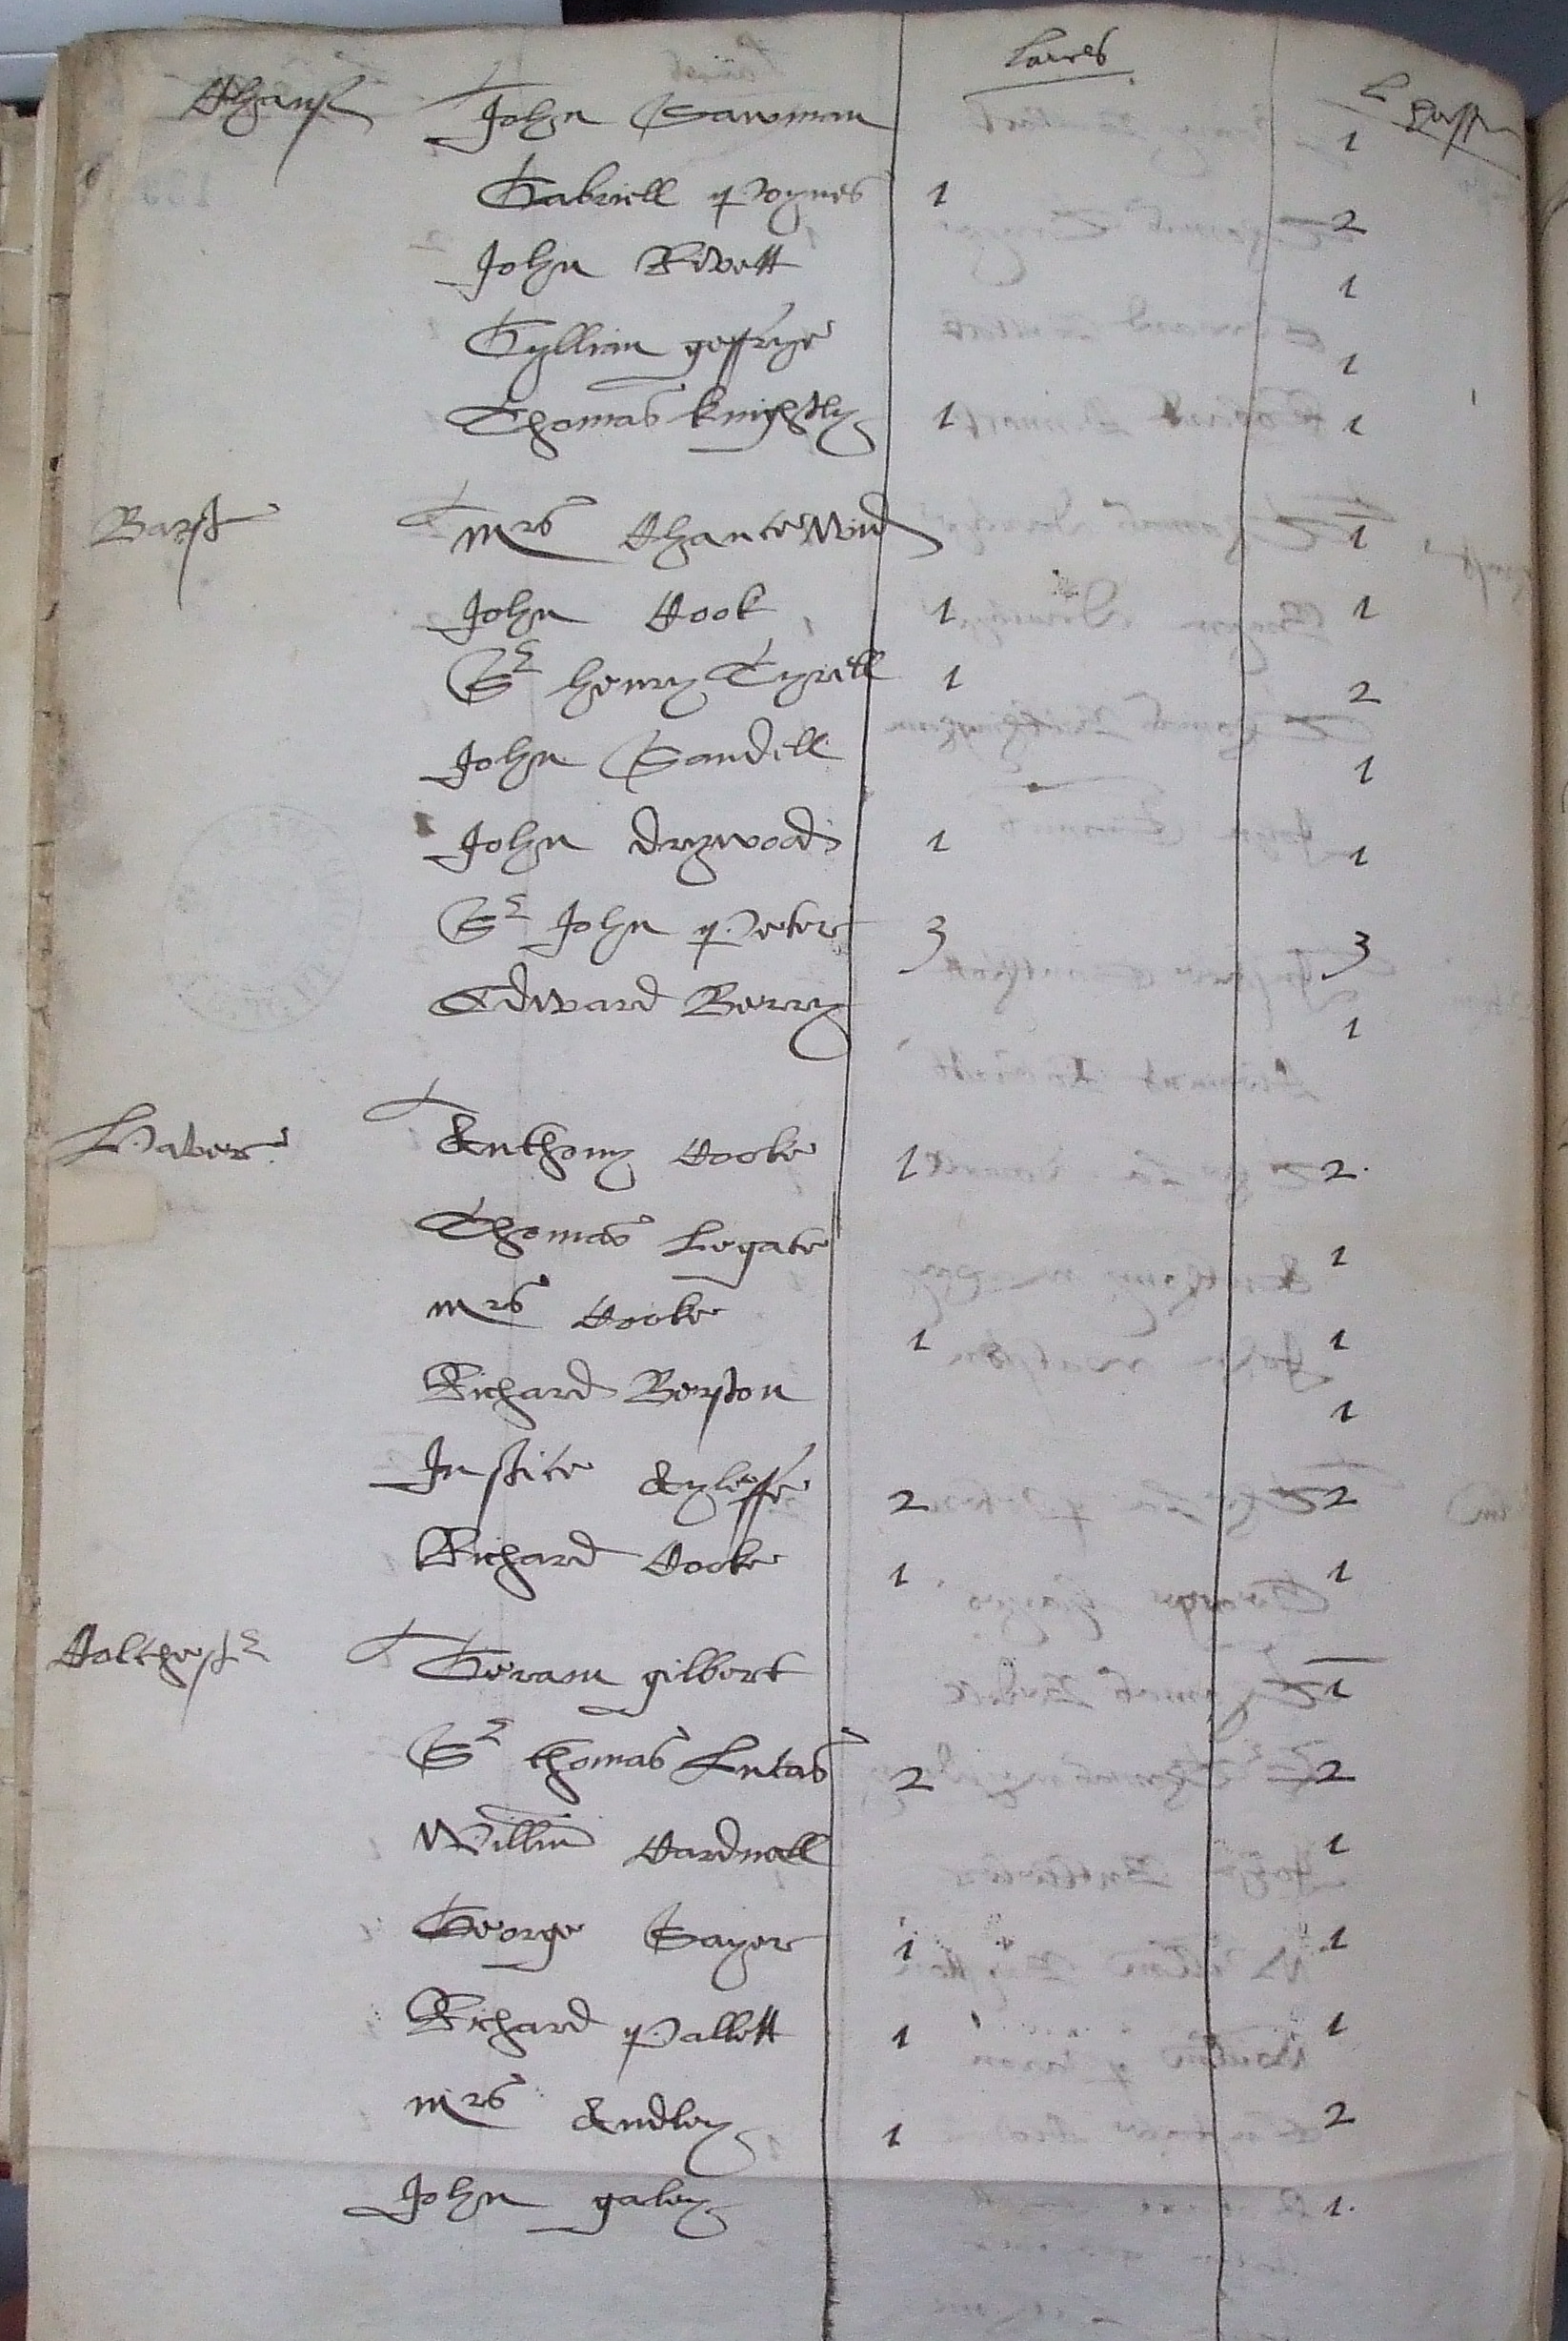 Launces L horse
Chanf John Sawman 1
Gabriell Poynes 1 2
John Rivett 1
Gyllian geffrye 1
Thomas knightly 1 1
Barst Mrs Chancewind 1
John Cook 1 1
Sr henry Tyrell 1 2
John Sandell 1
John drywood 1 1
Sr John Peter 3 3
Edward Berry 1
Haver Anthony Cooke 1 2
Thomas Legate 1
mrs Cooke 1 1
Richard Berston 1
Justice Ayleffe 2 2
Richard Cooke 1 1
Colchestr Geram gilbert 1
Sr thomas Lucas 2 2
Willm Cardnall 1
George Sayer 1 1
Richard Pallett 1 1
mrs Audley 1 2
John galey 1